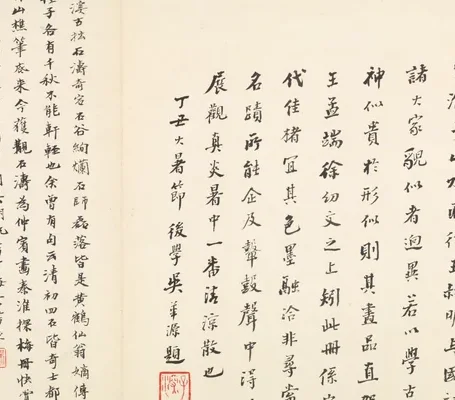 王叔明與
諸大家貌似者迥異若以學古
神似貴於形似則其畫品直駕
王孟端徐幼文之上矧此冊係
代佳楮宜其色墨融洽非尋常
名蹟所能企及輦轂聲中得
展觀真炎暑中一番清涼散也
丁丑大暑節後學吳華源題
古拙石濤奇宕石谷絢爛石師磊落皆是黃鶴仙翁嫡傳
種子各有千秋不能軒輊也余曾有句云清初四石皆奇士都
山樵筆底來今獲觀石濤為仲賓畫秦淮探梅冊快賞